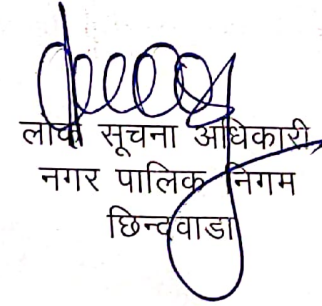 लोक सूचना अधिकारी
नगर पालिक निगम
छिन्दवाडा